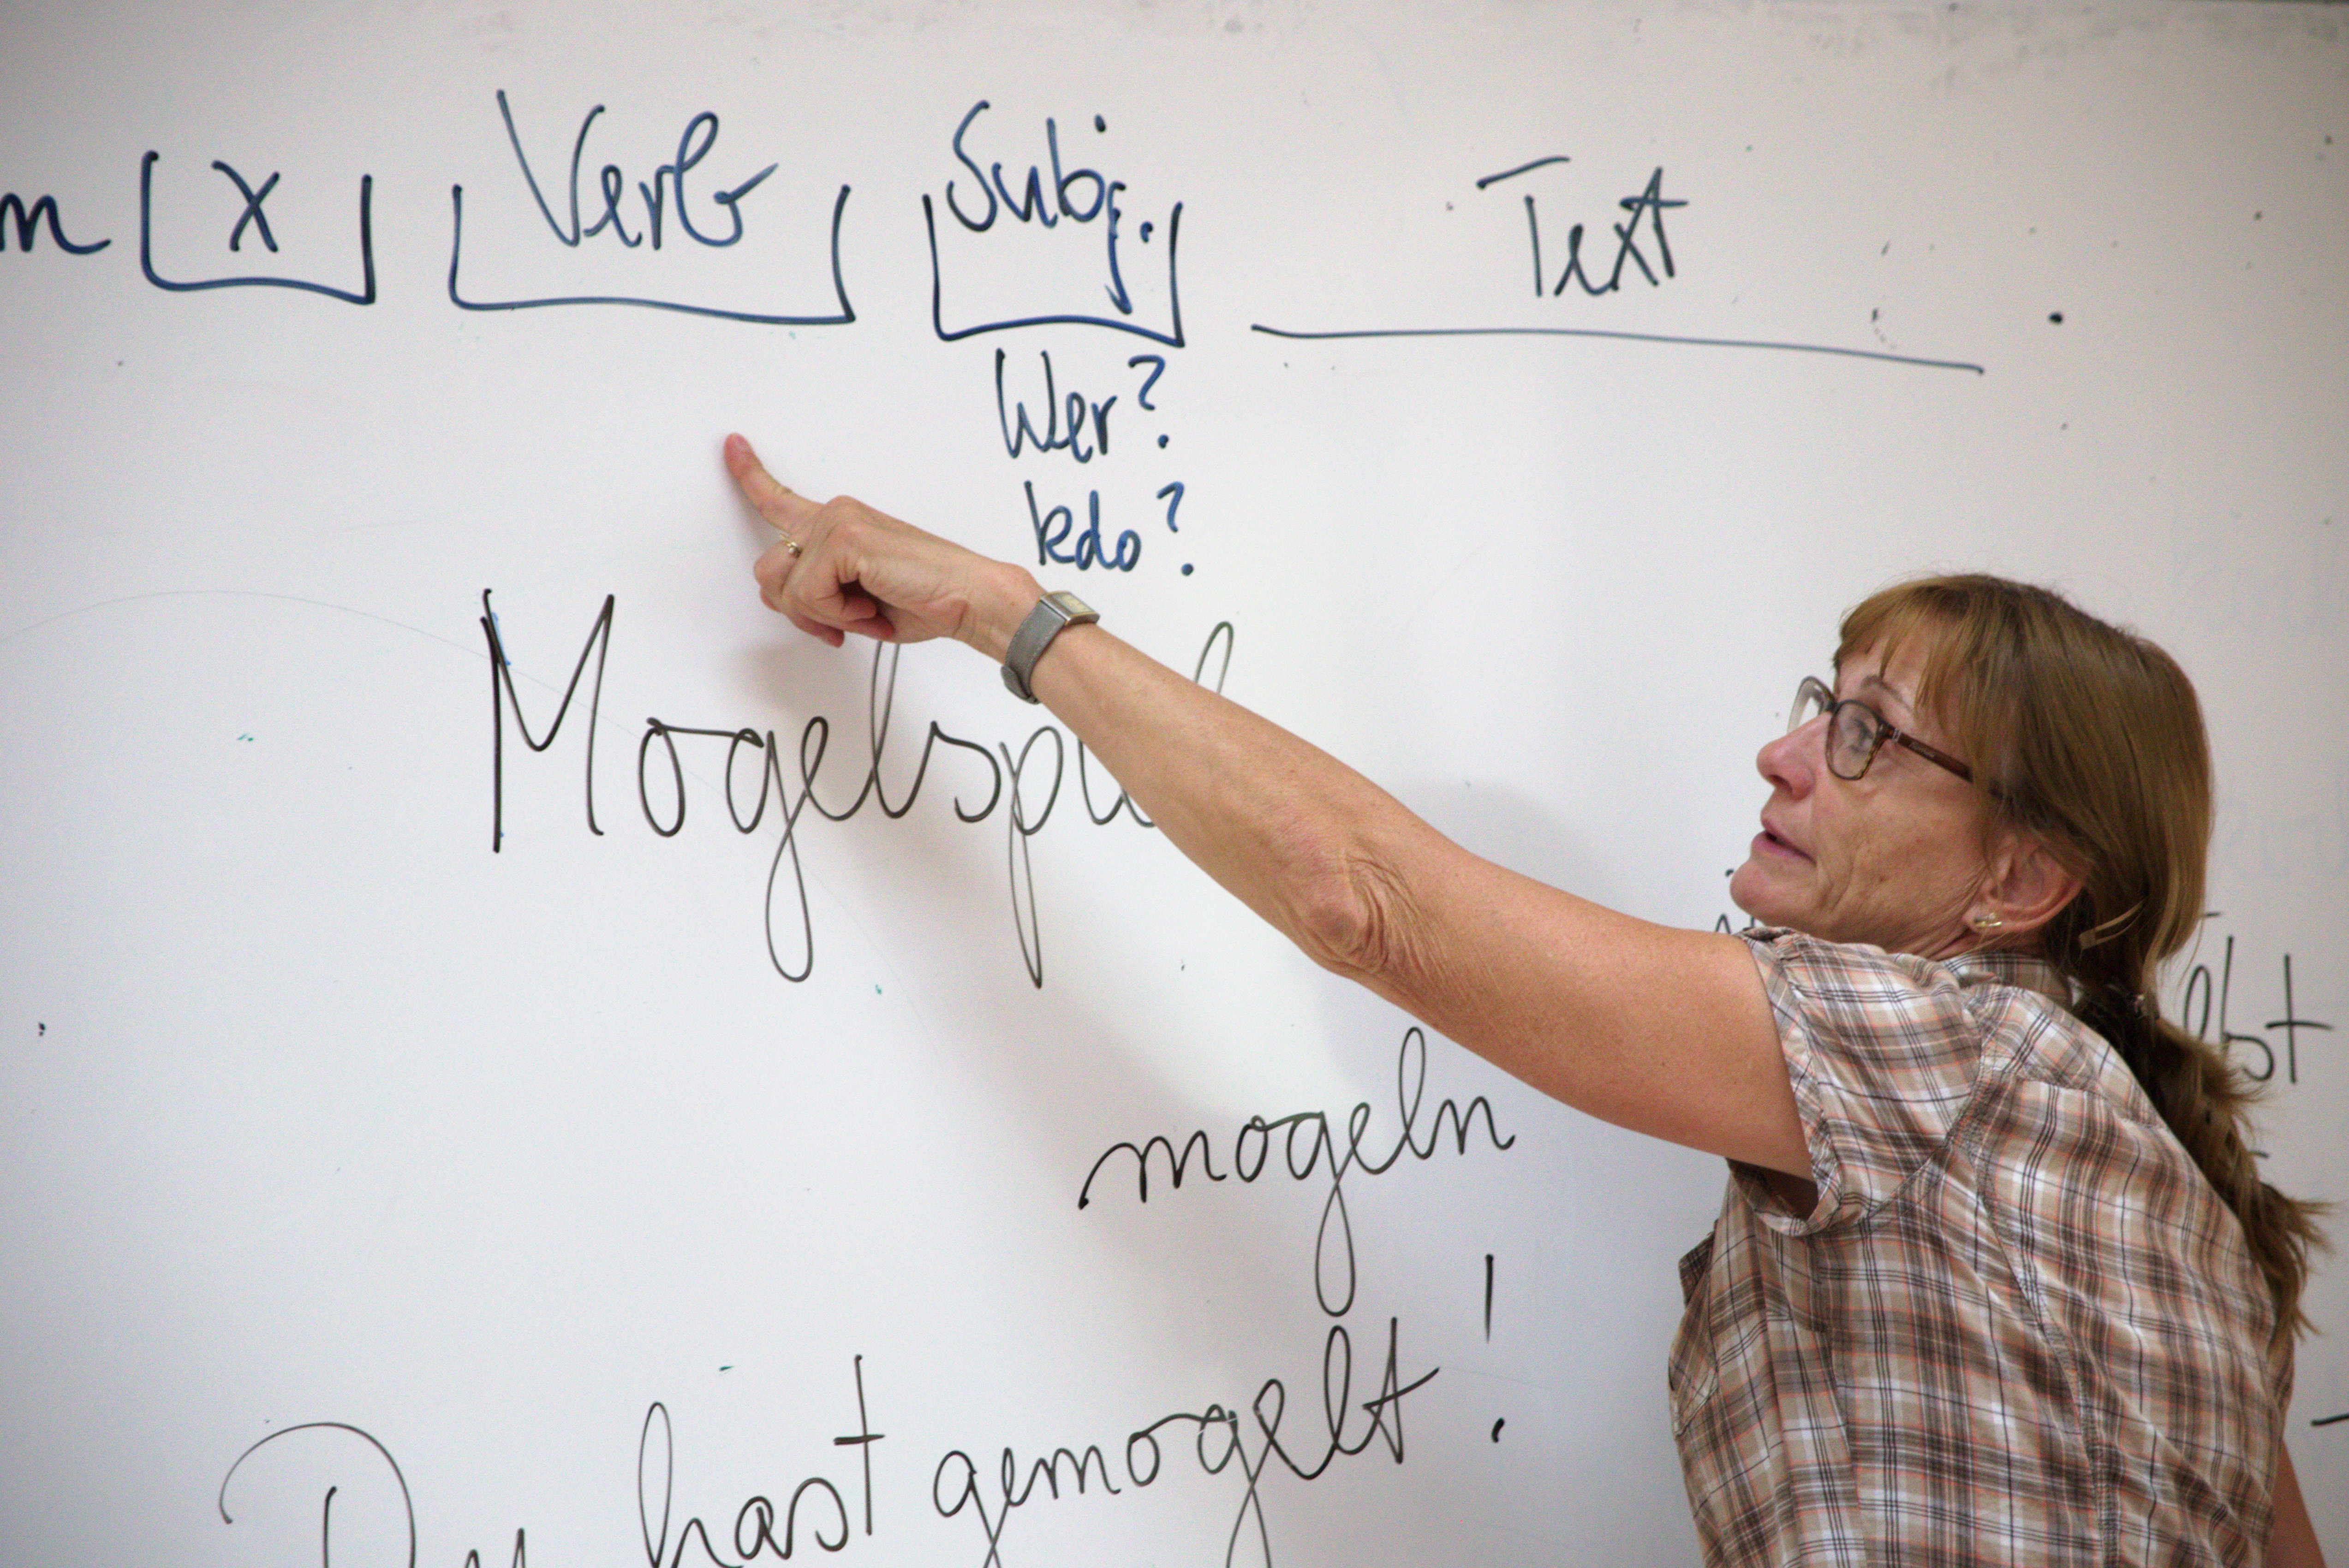 x Verb Subj. Text
Wer?
kdo?
Mogelspiel
mogeln
Du hast gemogelt!